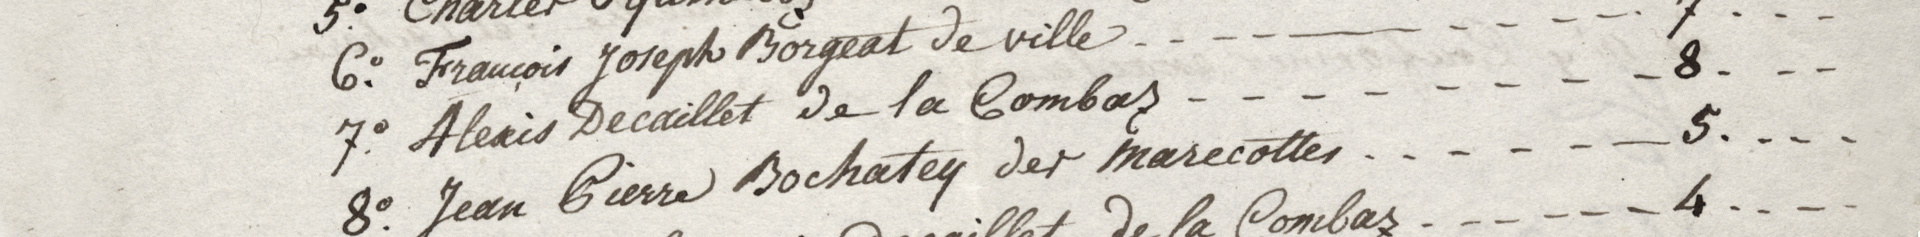 5.° Charles
6.° François Joseph Borgeat de ville - - - - - - - - 7 - - -
7.° Alexis Decaillet de la Combaz - - - - - - - - 8. - - -
8.° Jean Pierre Bochatey des marecottes . . - - - - - 5. - - -
Decaillet de la Combaz - - - - - - - 4 - - -